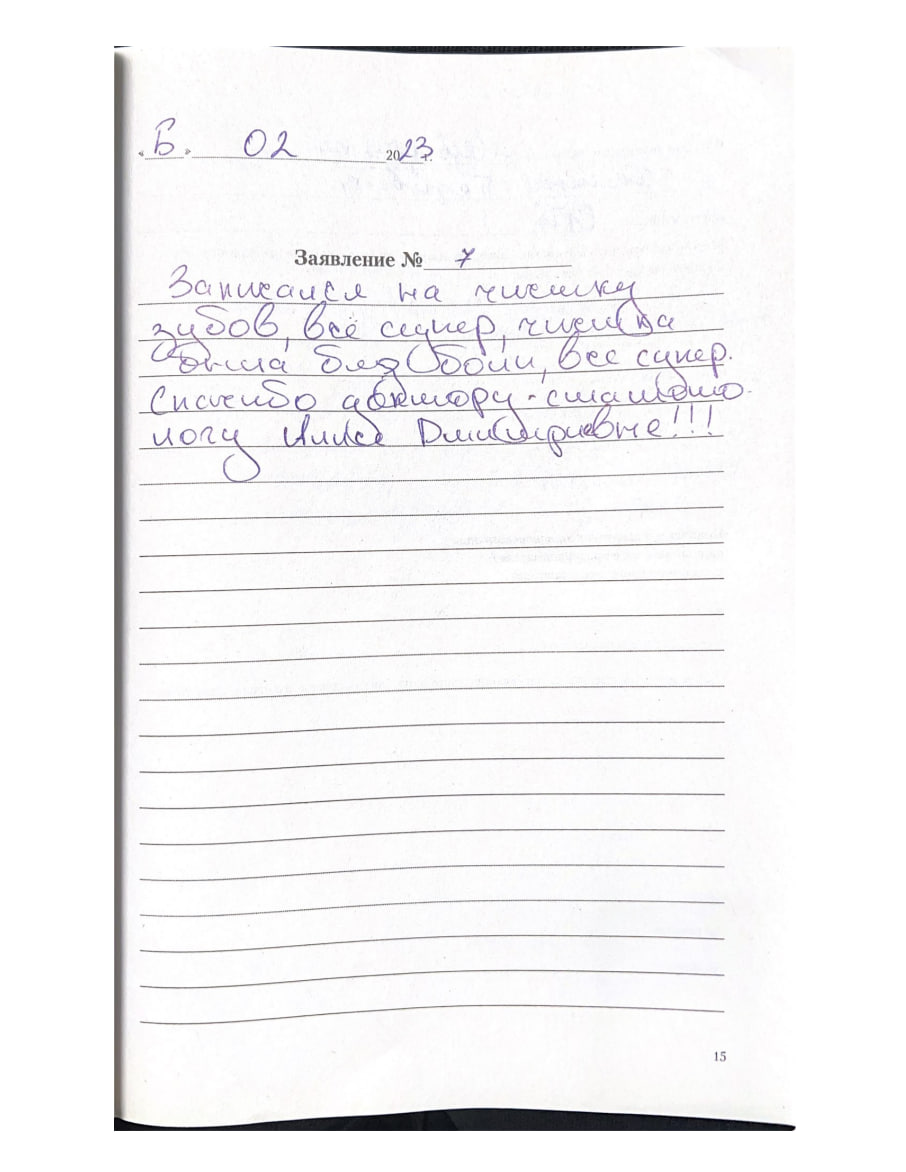 «Б.» 02 2023 г.
Заявление № 7
Записался на чистку
зубов, всё супер, чистка
была без боли, все супер.
Спасибо доктору-стомато-
логу Алисе Дмитриевне!!!
15